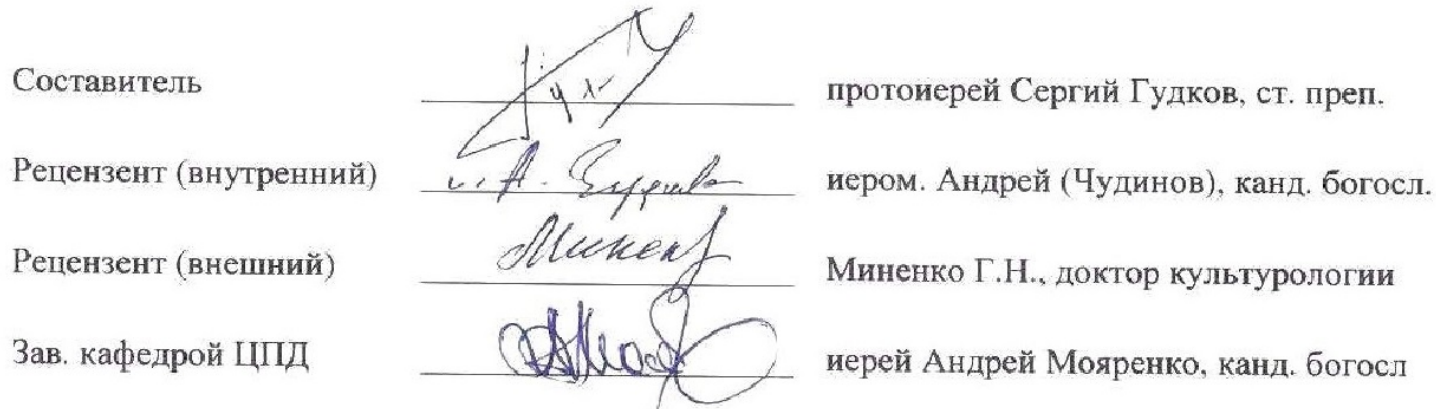 Составитель протоиерей Сергий Гудков, ст. преп.
Рецензент (внутренний) иером. Андрей (Чудинов), канд. богосл.
Рецензент (внешний) Миненко Г.Н., доктор культурологии
Зав. кафедрой ЦПД иерей Андрей Мояренко, канд. богосл